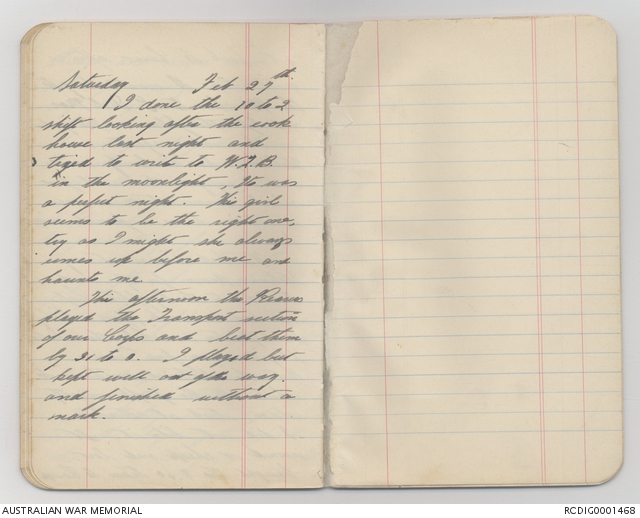 Saturday Feb 27th.
I done the 10 to 2
shift looking after the cook
house last night and
tried to write to W.L.B.
in the moonlight, It was
a perfect night. This girl
seems to be the right one,
try as I might she always
comes up before me and
haunts me.
This afternoon the
played the Transport section
of our Corps and beat them
by 31 to 0. I played but
kept well out of the way.
and finished without a
mark.
AUSTRALIAN WAR MEMORIAL
RCDIG0001468